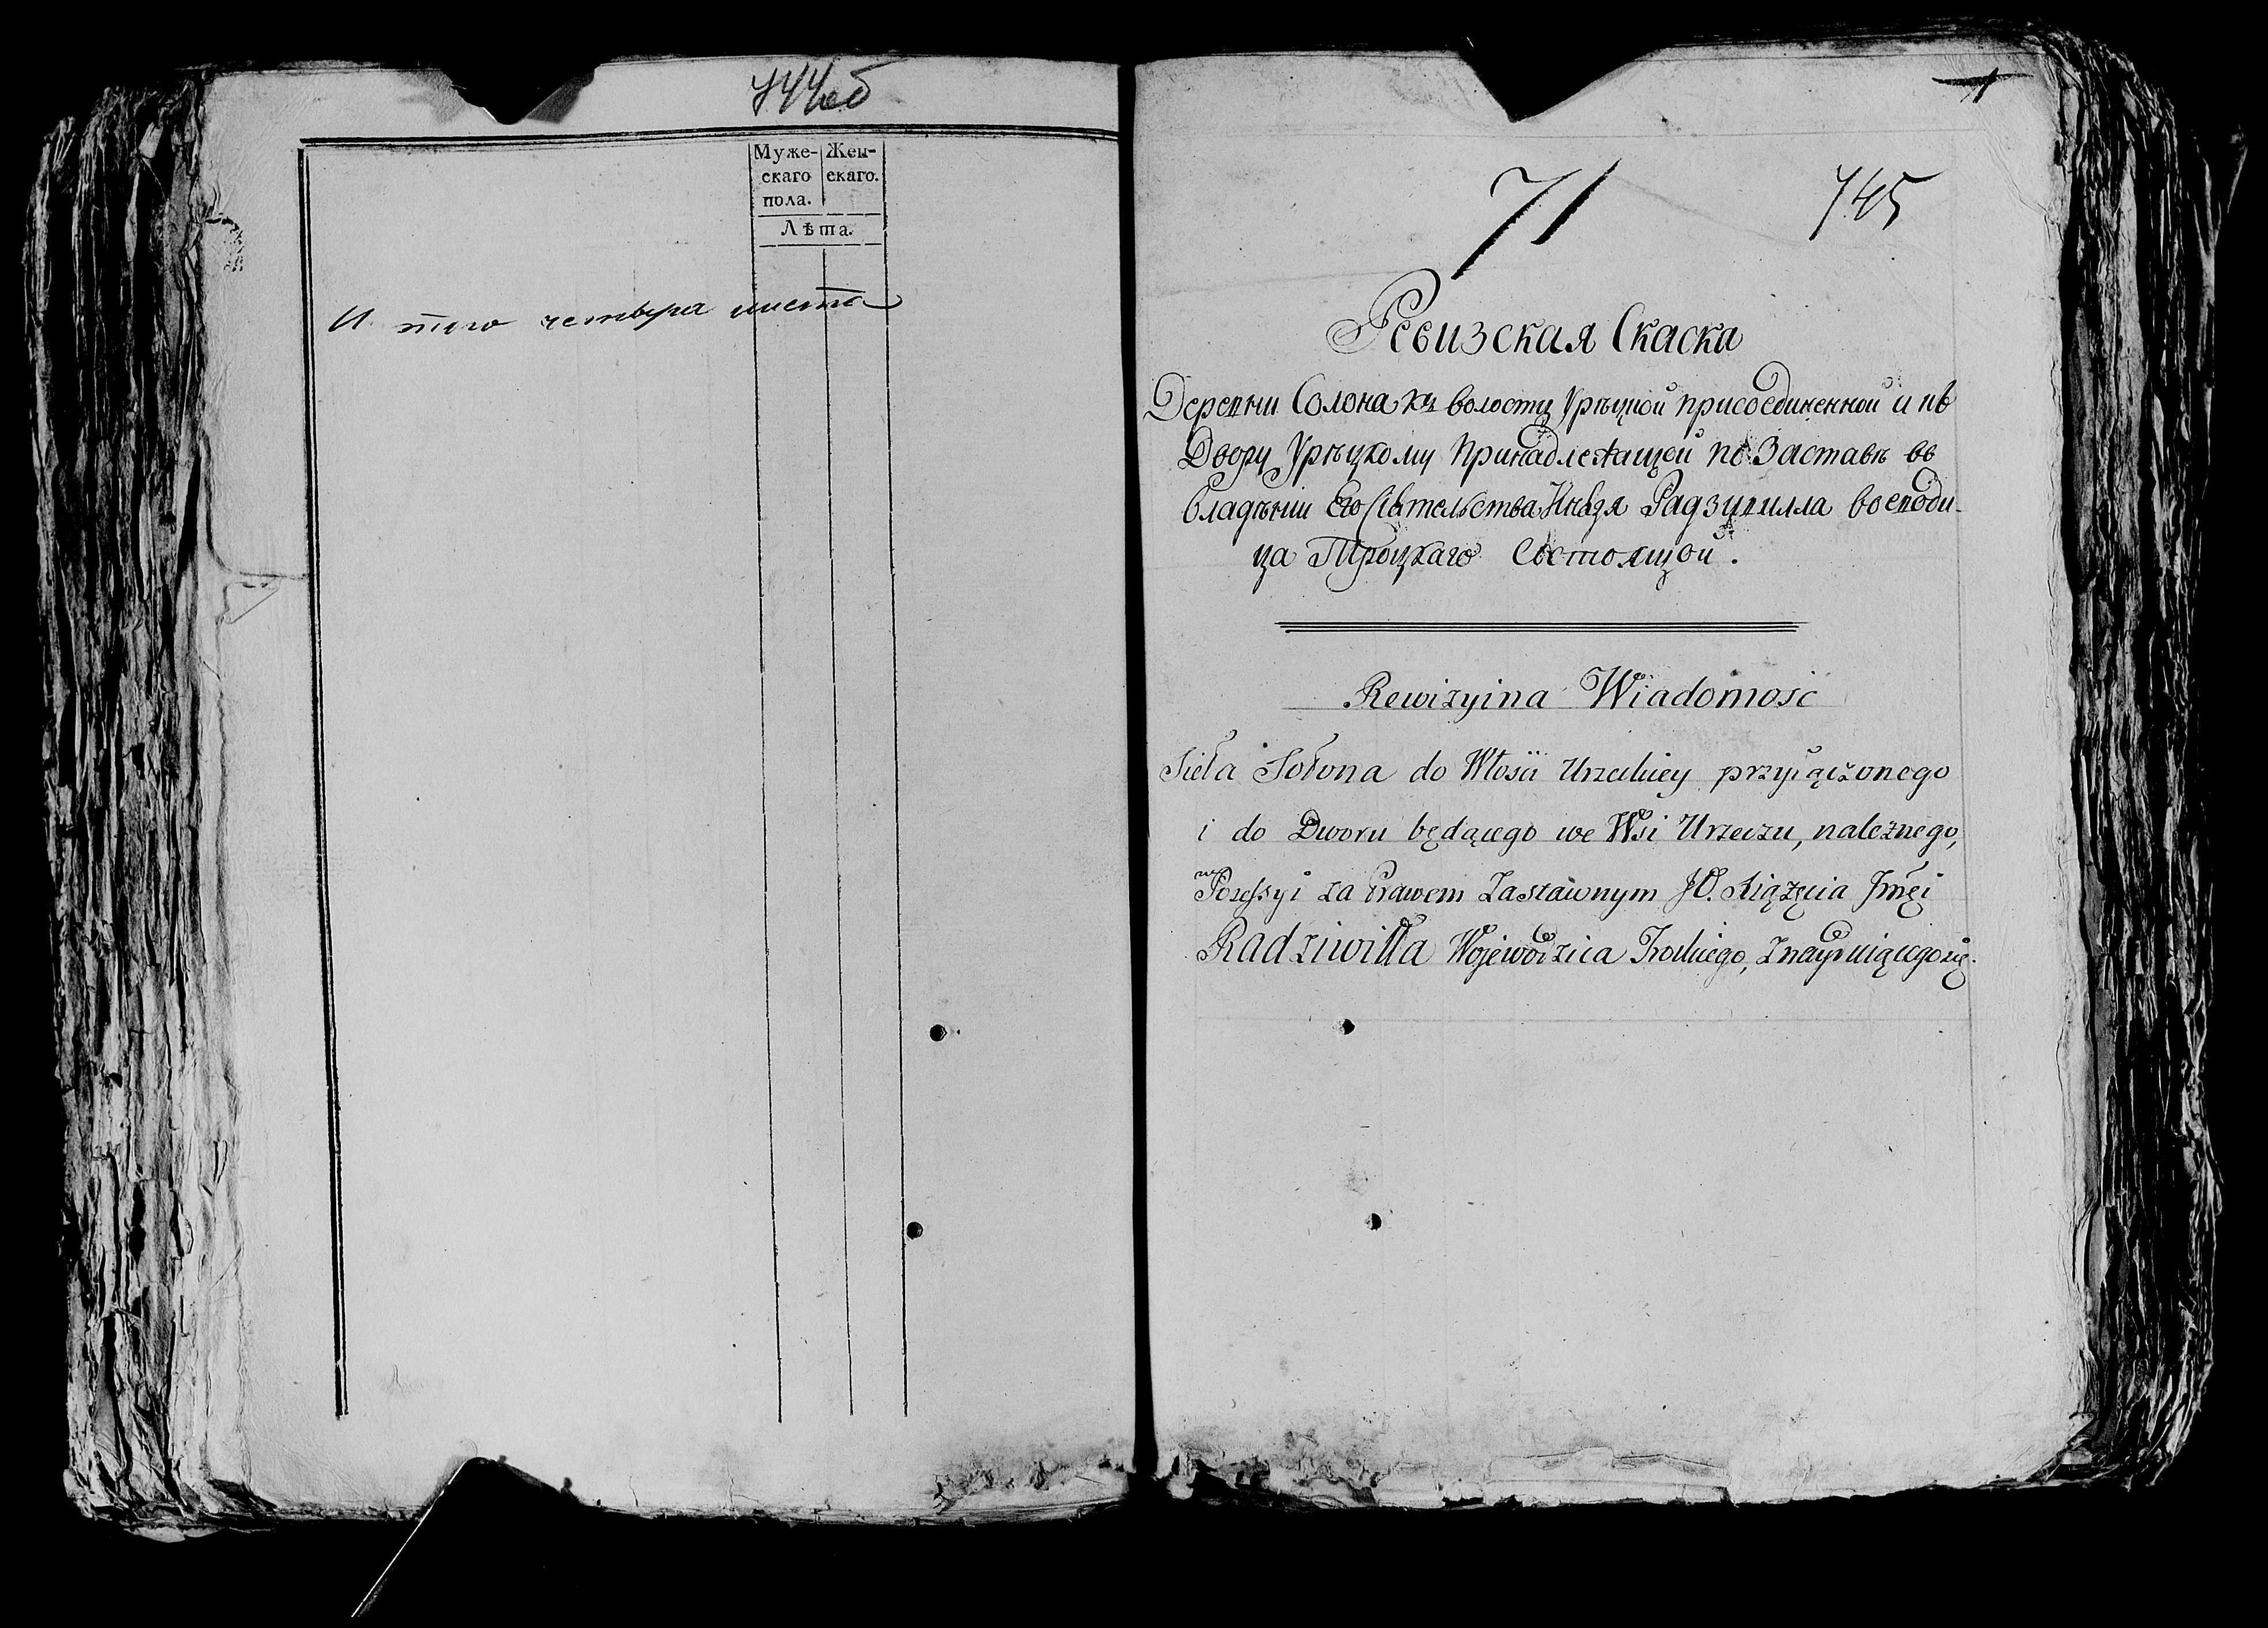 744об
Муже-
скаго
пола.
Жен-
скаго.
Лѣта.
И того четыре листа
1
71
745
Ревизская Скаска
Деревни Солона къ волости Урѣцкой присоединенной и къ
Двору Урѣцкому Принадлежащей по Заставѣ въ
Владѣнии Его Сіятельства Князя Радзивилла воеводи-
ца Троцкаго Состоящой.
Rewizyina Wiadomość
Sieła Sołona do Włości Urzeckiey przyłączonego
i do Dworu będącego we Wsi Urzeczu, należnego,
w Possessyi za Prawem Zastawnym JO. Książęcia Jmci
Radziwiłła Wojewodzica Trockiego, Znayduiącego się.